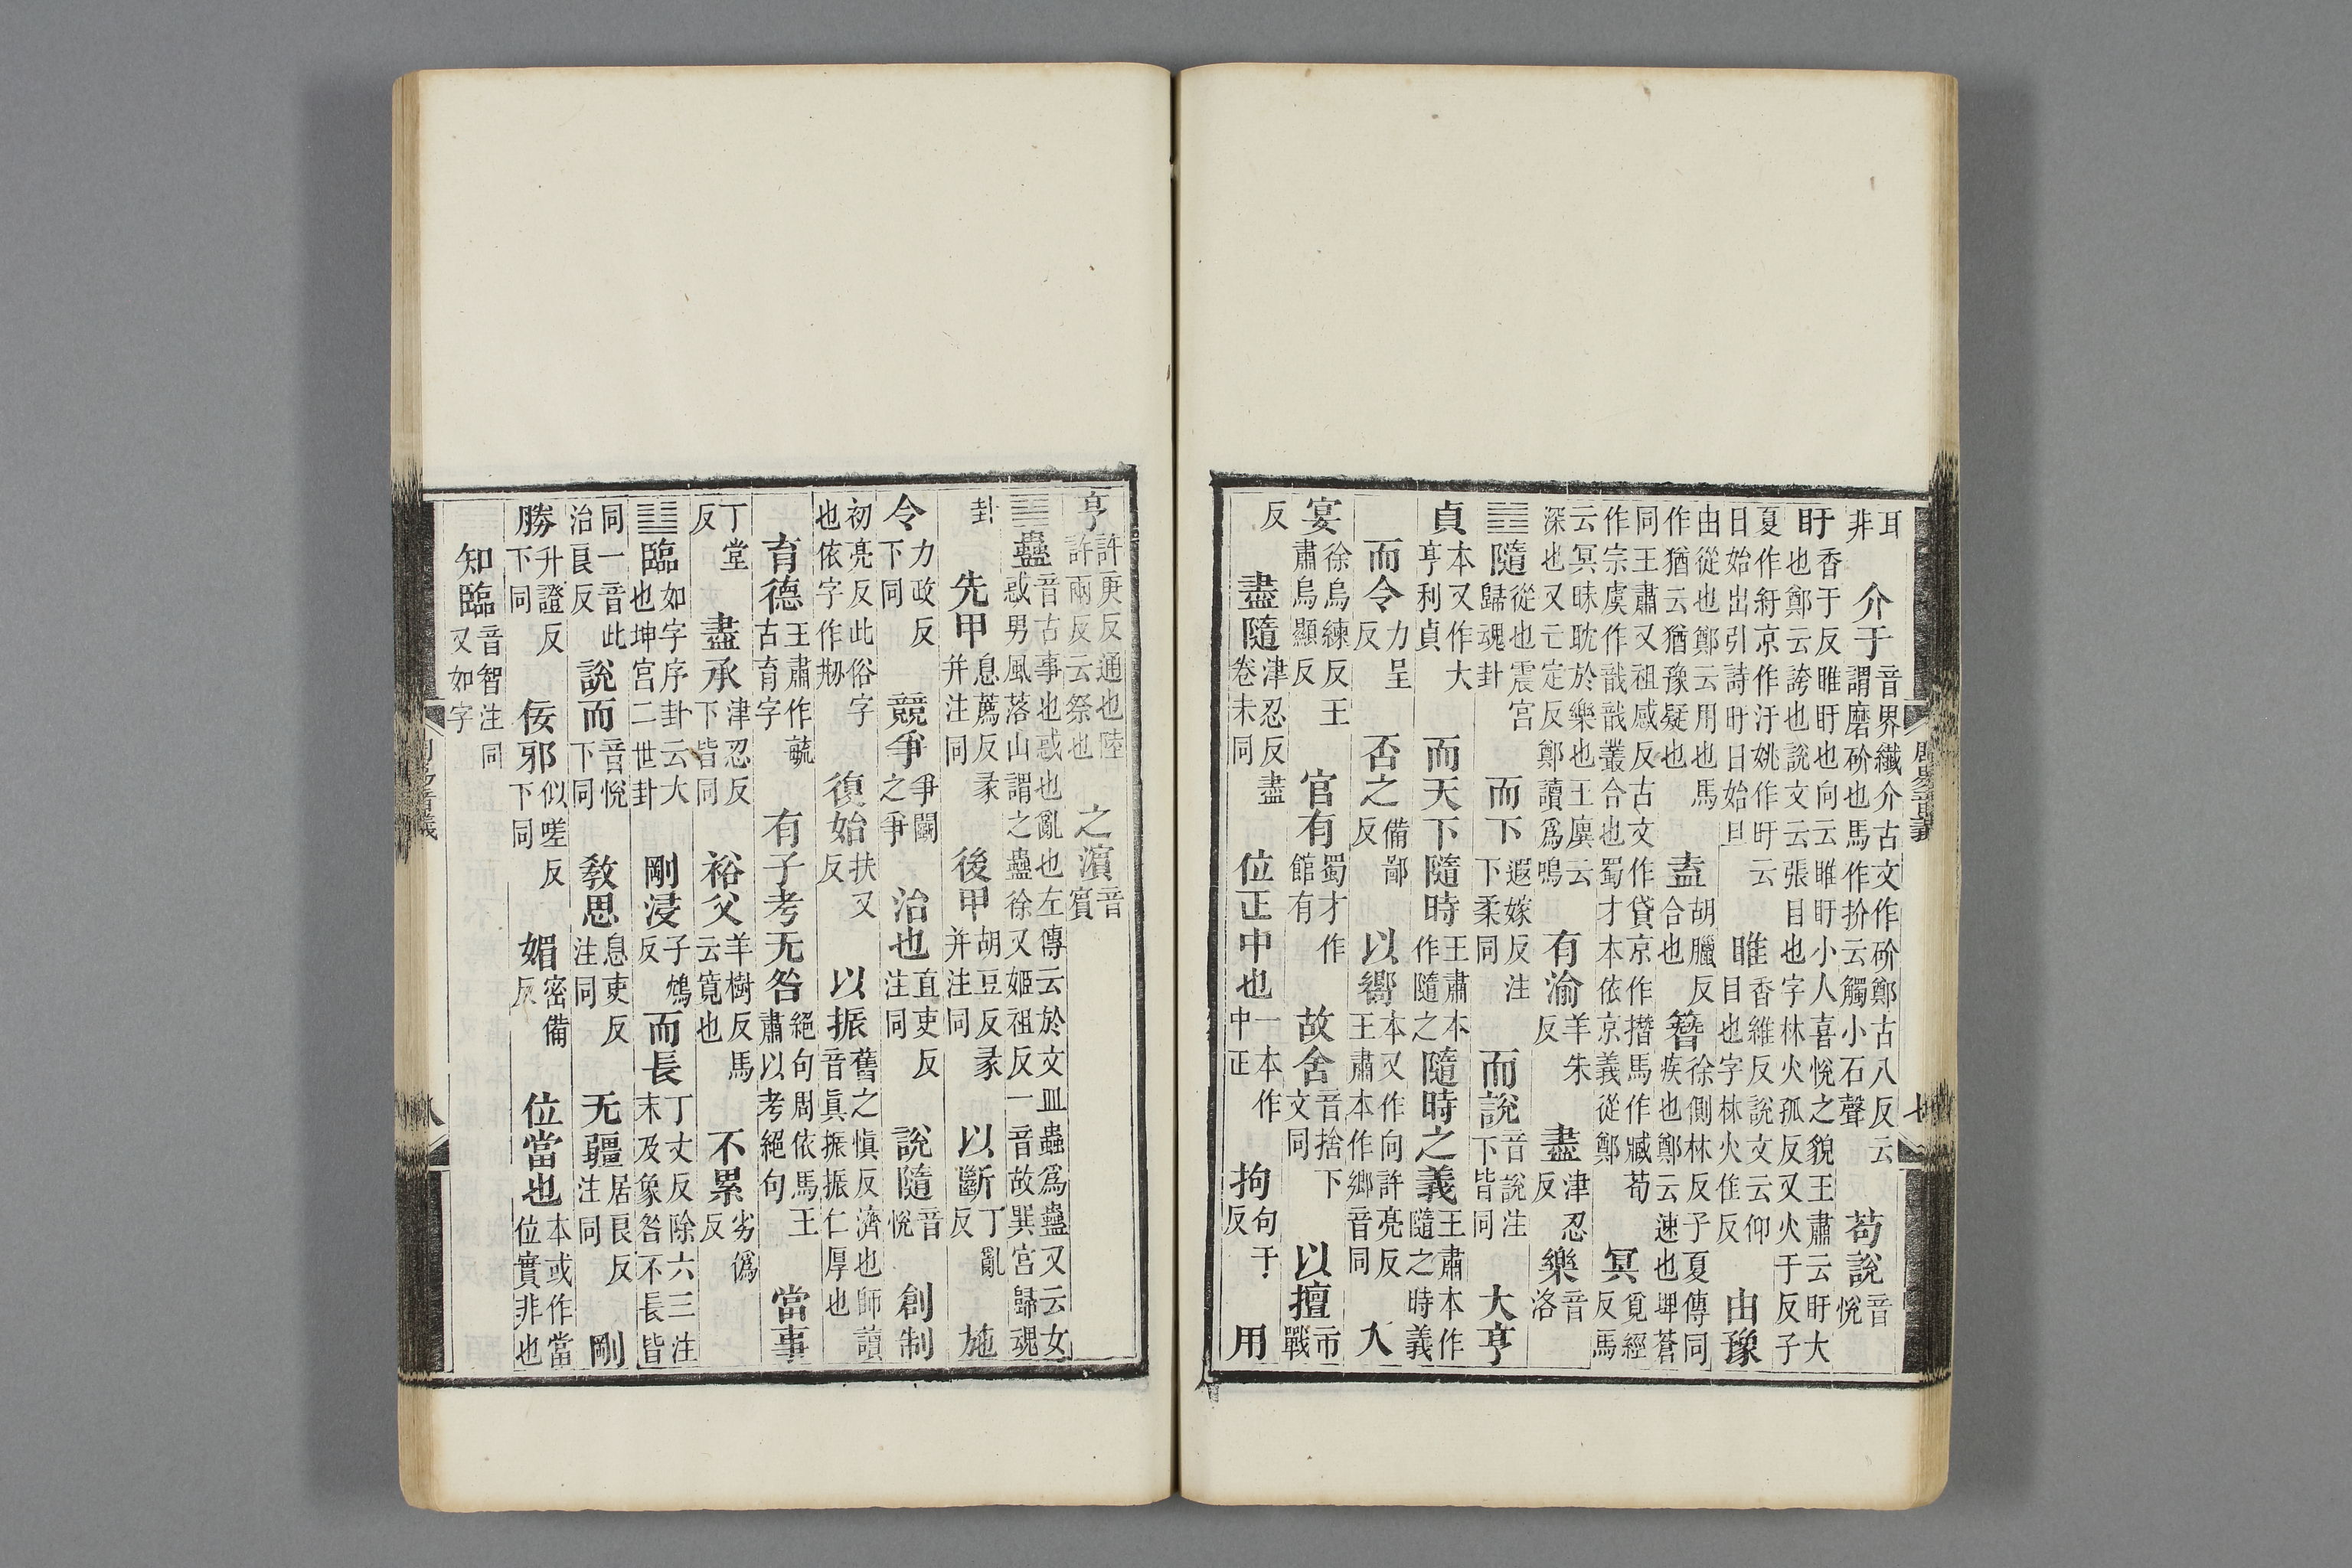 耳非 介于音界纖介古文作砎鄭古八反云謂磨砎也馬作扴云觸小石聲 苟說音悅
盱香于反睢盱也向云睢盱小人喜悅之貌王肅云盱大也鄭云誇也說文云張目也字林火孤反又火于反子
夏作紆京作汙姚作盱云日始出引詩盱日始旦 睢香維反說文云仰目也字林火隹反 由豫
由從也鄭云用也馬作猶云猶豫疑也 盍胡臘反合也 簪徐側林反子夏傳同疾也鄭云速也埤蒼
同王肅又祖感反古文作貸京作撍馬作臧荀作宗虞作戠戠叢合也蜀才本依京義從鄭 冥覓經反馬
云冥昧耽於樂也王廙云深也又亡定反鄭讀爲鳴 有渝羊朱反 盡津忍反 樂音洛
䷐隨從也震宮歸魂卦 而下遐嫁反注下柔同 而說音說注下皆同 大亨
貞本又作大亨利貞 而天下隨時王肅本作隨之 隨時之義王肅本作隨之時義
而令力呈反 否之備鄙反 以嚮本又作向許亮反王肅本作鄉音同 入
宴徐烏練反王肅烏顯反 官有蜀才作館有 故舍音捨下文同 以擅市戰
反 盡隨津忍反盡卷末同 位正中也一本作中正 拘句于反 用
周易音義 七
亨許庚反通也陸許兩反云祭也 之濱音賓
䷑蠱音古事也惑也亂也左傳云於文皿蟲爲蠱又云女惑男風落山謂之蠱徐又姬祖反一音故巽宮歸魂
卦 先甲息薦反彖并注同 後甲胡豆反彖并注同 以斷丁亂反 施
令力政反下同 競爭爭鬭之爭 治也直吏反注同 說隨音悅 創制
初亮反此俗字也依字作剏 復始扶又反 以振舊之愼反濟也師讀音眞振振仁厚也
育德王肅作毓古育字 有子考无咎絕句周依馬王肅以考絕句 當事
丁堂反 盡承津忍反下皆同 裕父羊樹反馬云寬也 不累劣僞反
䷒臨如字序卦云大也坤宮二世卦 剛浸子鴆反 而長丁丈反除六三注末及象咎不長皆
同一音此治良反 說而音悅下同 敎思息吏反注同 无疆居良反注同 剛
勝升證反下同 佞邪似嗟反下同 媚密備反 位當也本或作當位實非也
知臨音智注同又如字
周易音義 八